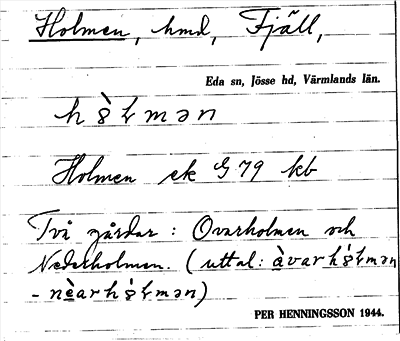 Holmen, hmd, Fjäll,
Eda sn, Jösse hd, Värmlands län.
Holmen ek G 79 kb
Två gårdar : Ovarholmen och
Nederholmen. (uttal:
PER HENNINGSSON 1944.